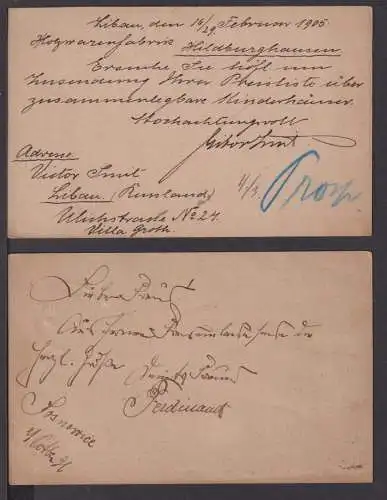 Libau, den 16/29. Februar 1905
Holzwarenfabrik Hildburghausen.
Ersuche Sie höfl. um
Zusendung Ihrer Preisliste über
zusammenlegbare Kinderhäuser.
Hochachtungsvoll
Victor Smit
Adresse:
Victor Smit
Libau. (Russland)
Ulichstrasse No 27.
Villa Groth.
4/3
Prosp
Lieber Franz
Aus
herzl. Grüße
Dein
Ferdinand
Sosnowice